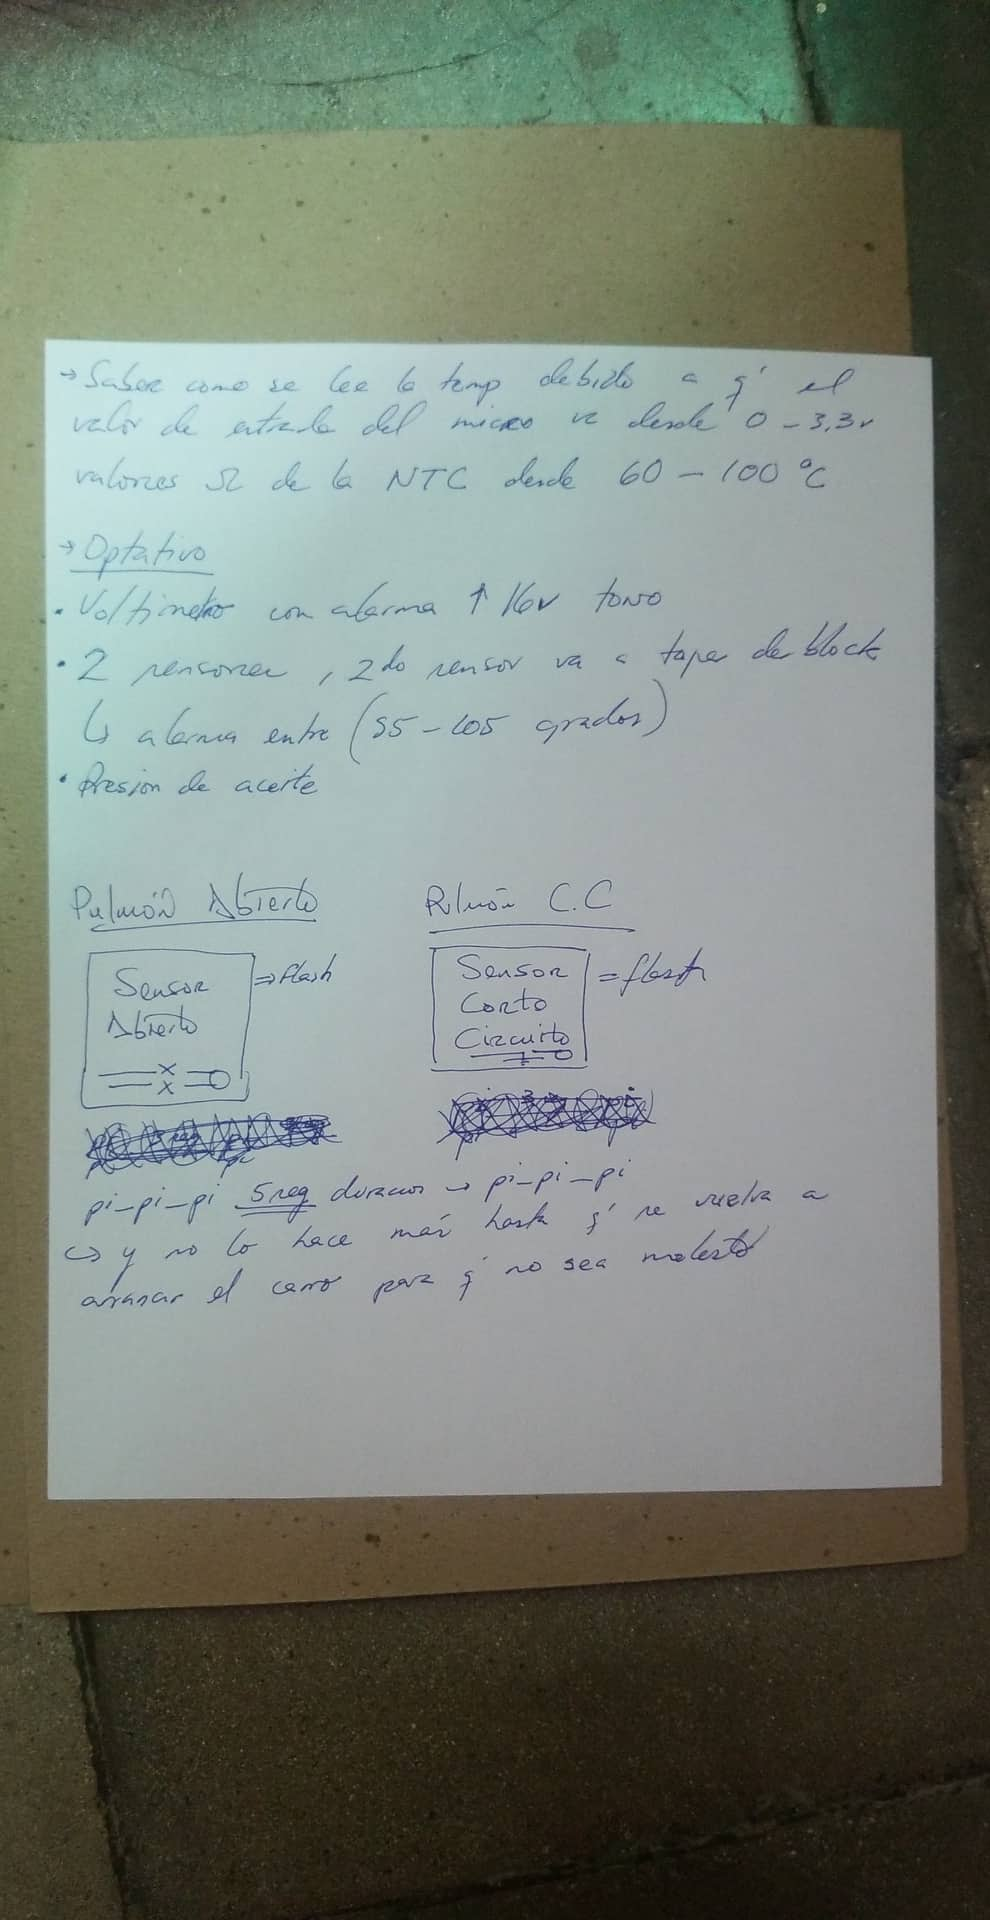 → Saber como se lee la temp debido a q' el
valor de entrada del micro va desde 0 - 3,3v
valores Ω de la NTC desde 60 - 100 °C
→ Optativo
• Voltimetro con alarma ↑ 16v tono
• 2 sensores, 2do sensor va a tapa de block
↳ alarma entre (95 - 105 grados)
• Presion de aceite
Pulmón Abierto
Pulmón C.C
Sensor
Abierto
⇒ flash
Sensor
Corto
Circuito
= flash
pi-pi-pi 5 seg duracion → pi-pi-pi
↪ y no lo hace más hasta q' se vuelva a
arrancar el carro para q' no sea molesto